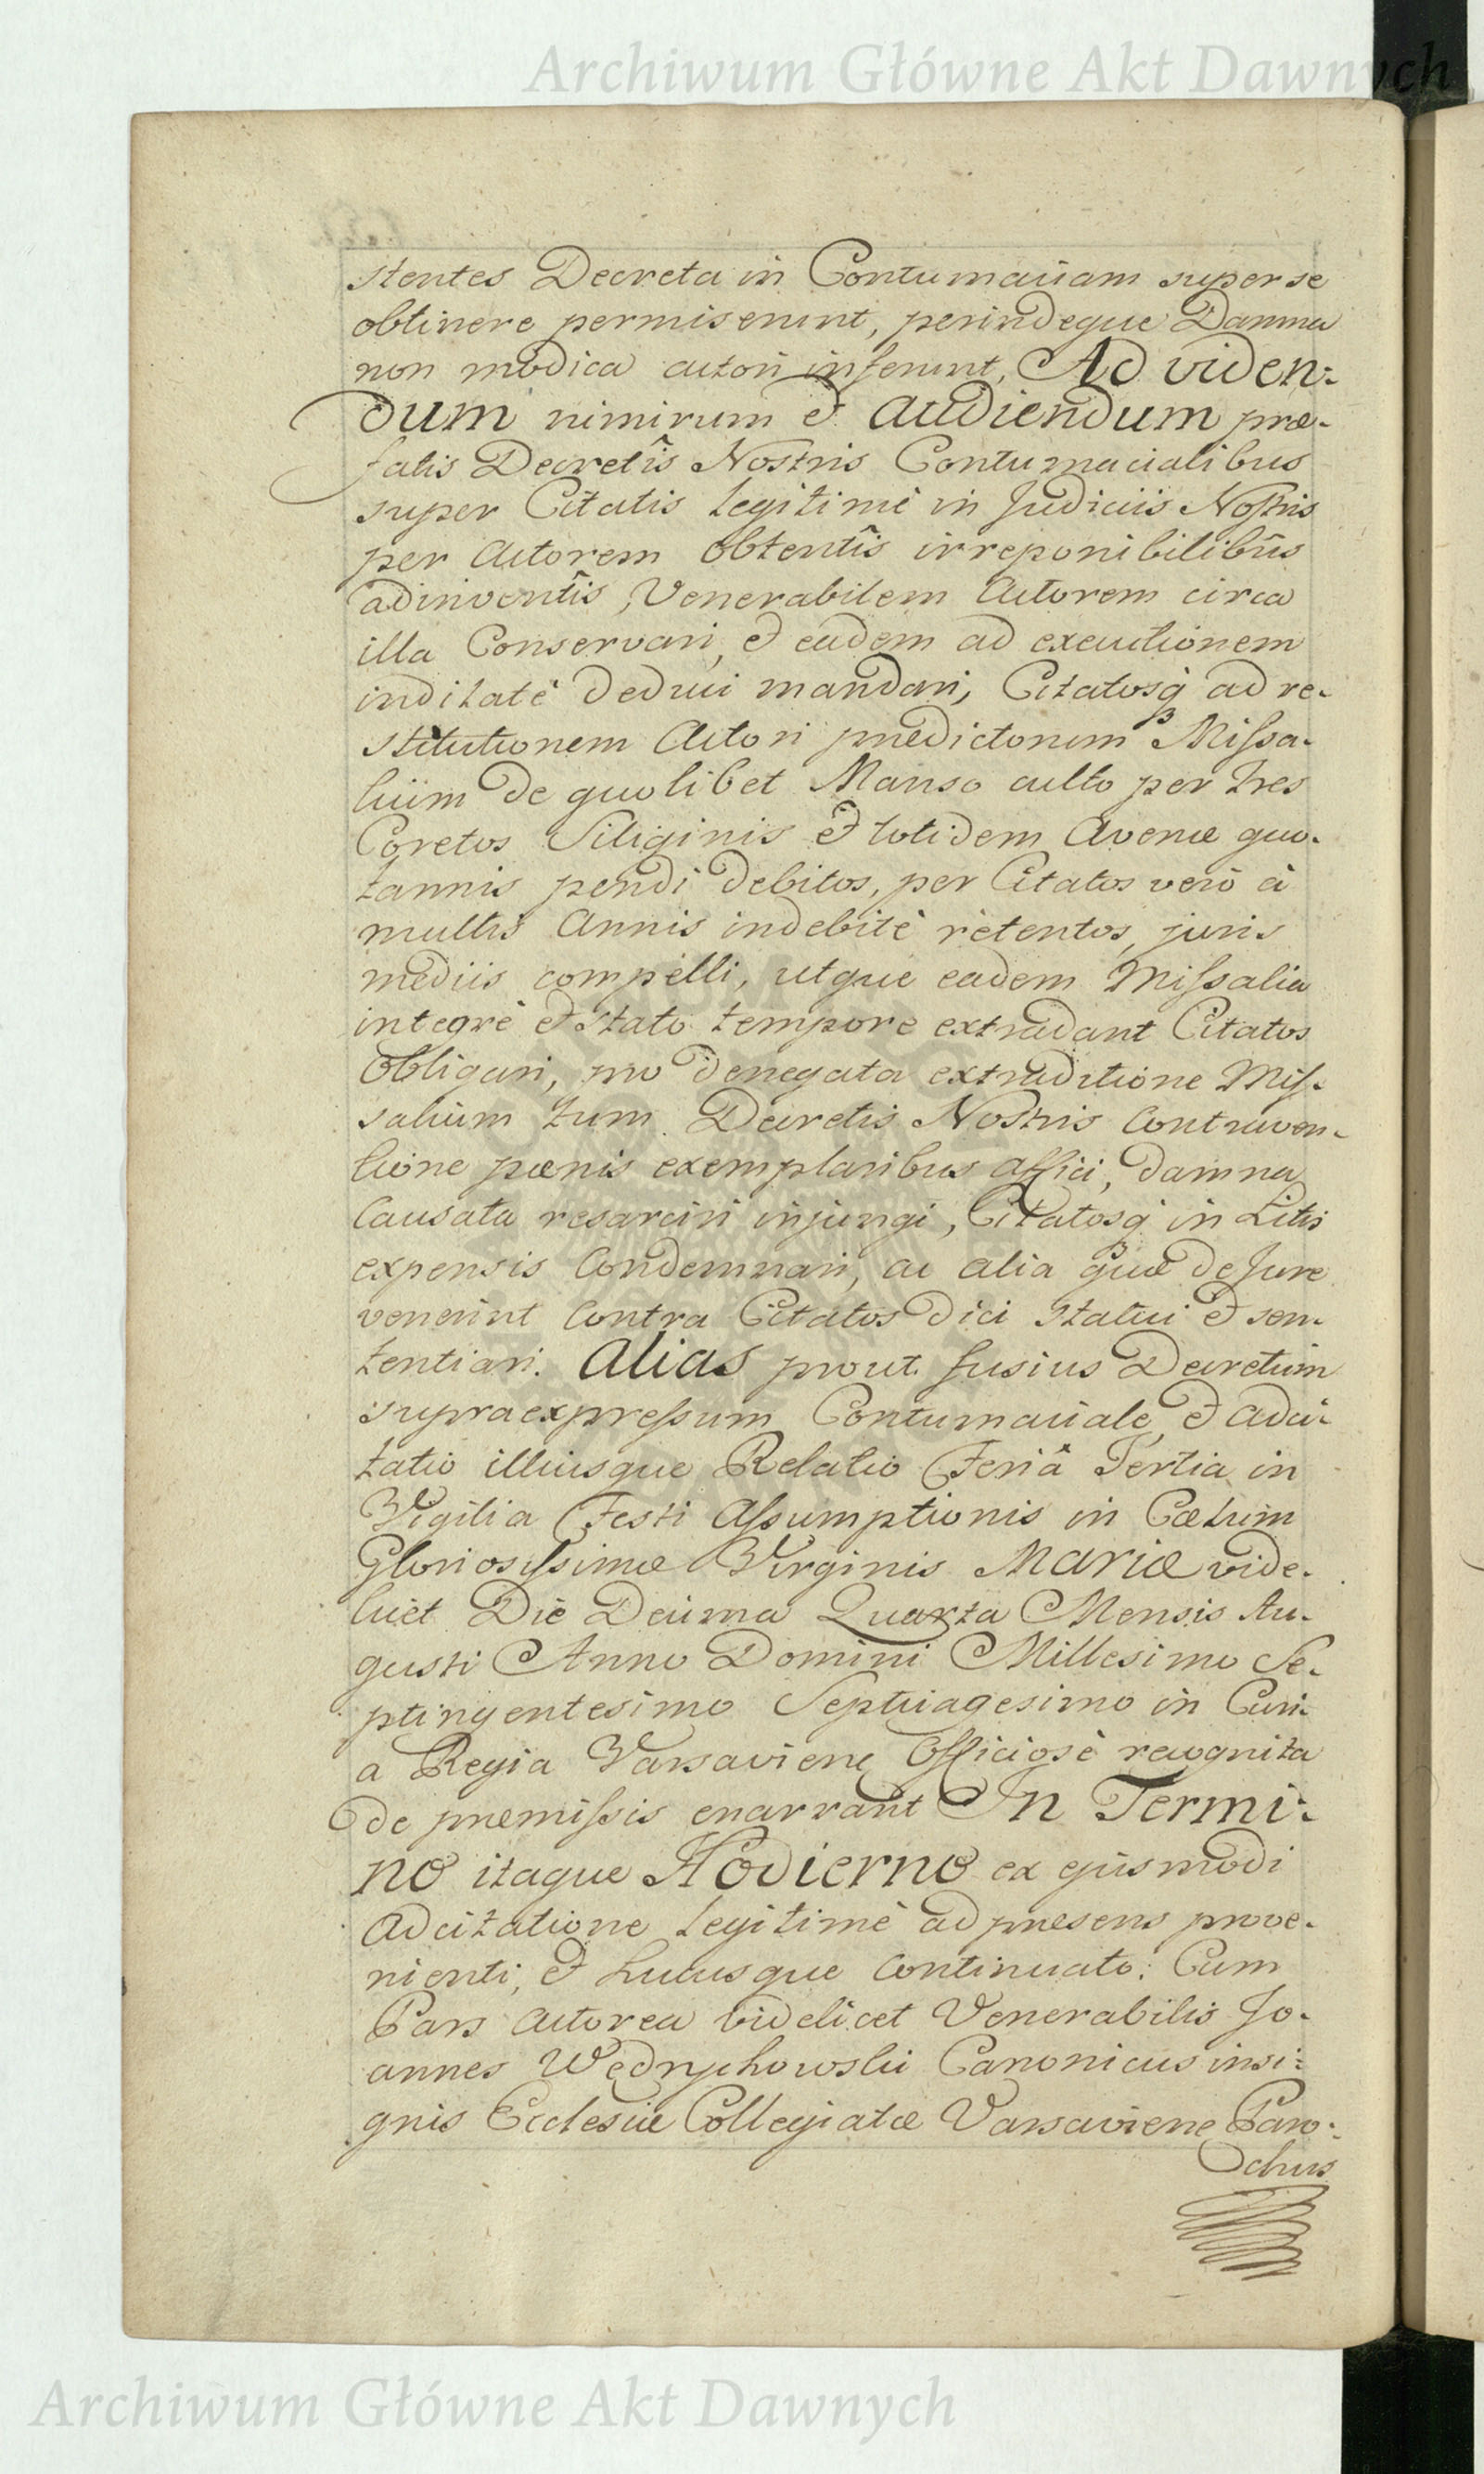 Archiwum Główne Akt Dawnych
stentes Decreta in Contumaciam super se
obtinere permiserunt, perindeque Damna
non modica actori inferunt, Ad viden:
dum nimirum et audiendum præ-
fatis Decretîs Nostris Contumacialibus
super Citatis legitimè in Judiciis Nostris
per Actorem obtentîs irreponibilibûs
adinventîs, Venerabilem Actorem circa
illa Conservari, et eadem ad executionem
inditatè deduci mandari, Citatosq ad re-
stitutionem Actori prædictorum Missa-
lium de quolibet Manso culto per tres
Coretos Siliginis et totidem Avenæ quo-
tannis pendi debitos, per Citatos verò à
multis Annis indebitè retentos, juris
mediis compelli, utque eadem Missalia
integrè et stato tempore extradant Citatos
obligari, pro denegata extraditione Mis-
salium tum Decretis Nostris Contraven-
tione pœnis exemplaribus affici, damna
Causata resarciri injungi, Citatosq in Litis
expensis Condemnari, ac alia quæ de Jure
venerint Contra Citatos dici statui et sen-
tentiari. Alias prout fusius Decretum
supraexpressum Contumaciale et adci-
tatio illiusque Relatio Feriâ Tertia in
Vigilia Festi Assumptionis in Cœlum
Gloriosissimæ Virginis Mariæ vide-
licet Die Decima Quarta Mensis Au-
gusti Anno Domini Millesimo Se-
ptingentesimo Septuagesimo in Curi-
a Regia Varsaviene Officiosè recognita
de præmissis enarrant In Termi:
no itaque Hodierno ex ejusmodi
adcitatione legitimè ad præsens prove-
nienti, et hucusque Continuato: Cum
Pars Actorea videlicet Venerabilis Jo-
annes Wędrychowski Canonicus insi:
gnis Ecclesiæ Collegiatæ Varsaviene Paro:
chus
Archiwum Główne Akt Dawnych